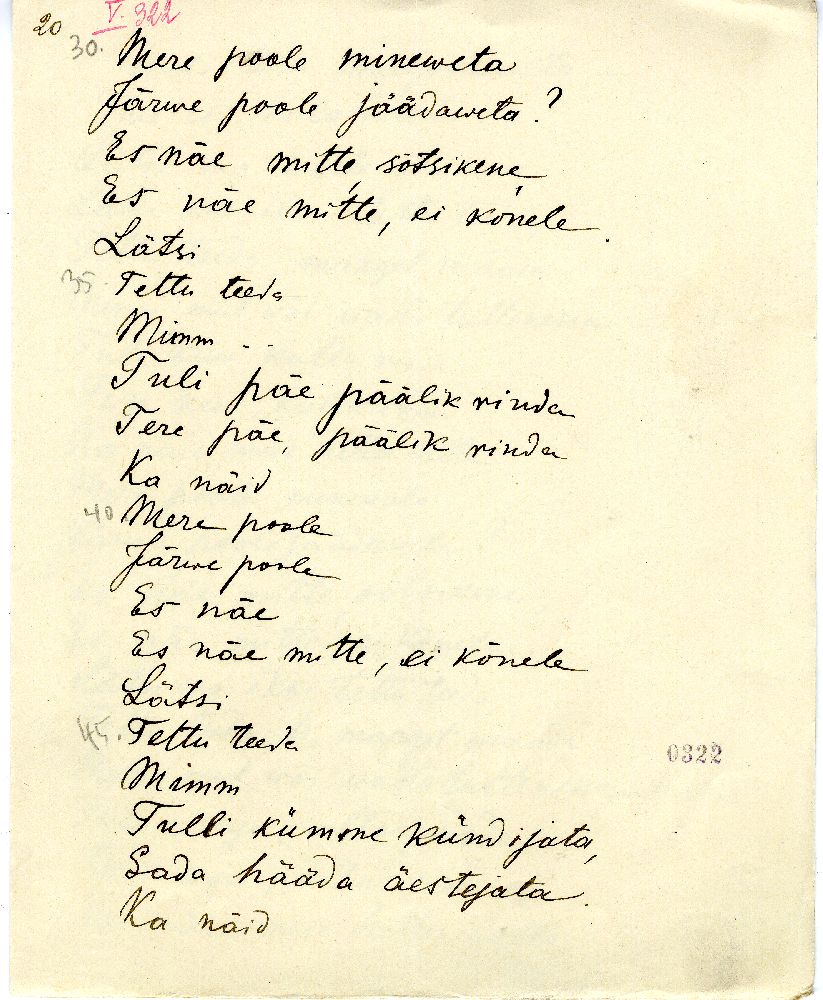 20 V. 322
30. Mere poole mineweta
Järwe poole jäädaweta?
Es näe mitte, sõtsikene,
Es näe mitte, ei kõnele.
Lätsi
35. Tettu teeda
Mimm - -
Tuli päe päälik rinda
Tere päe, päälik rinda
Ka näid
40 Mere poole
Järwe poole
Es näe
Es näe mitte, ei kõnele
Lätsi
45. Tettu teeda
Mimm
0322
Tulli kümme kündijata,
Sada hääda äestejata.
Ka näid